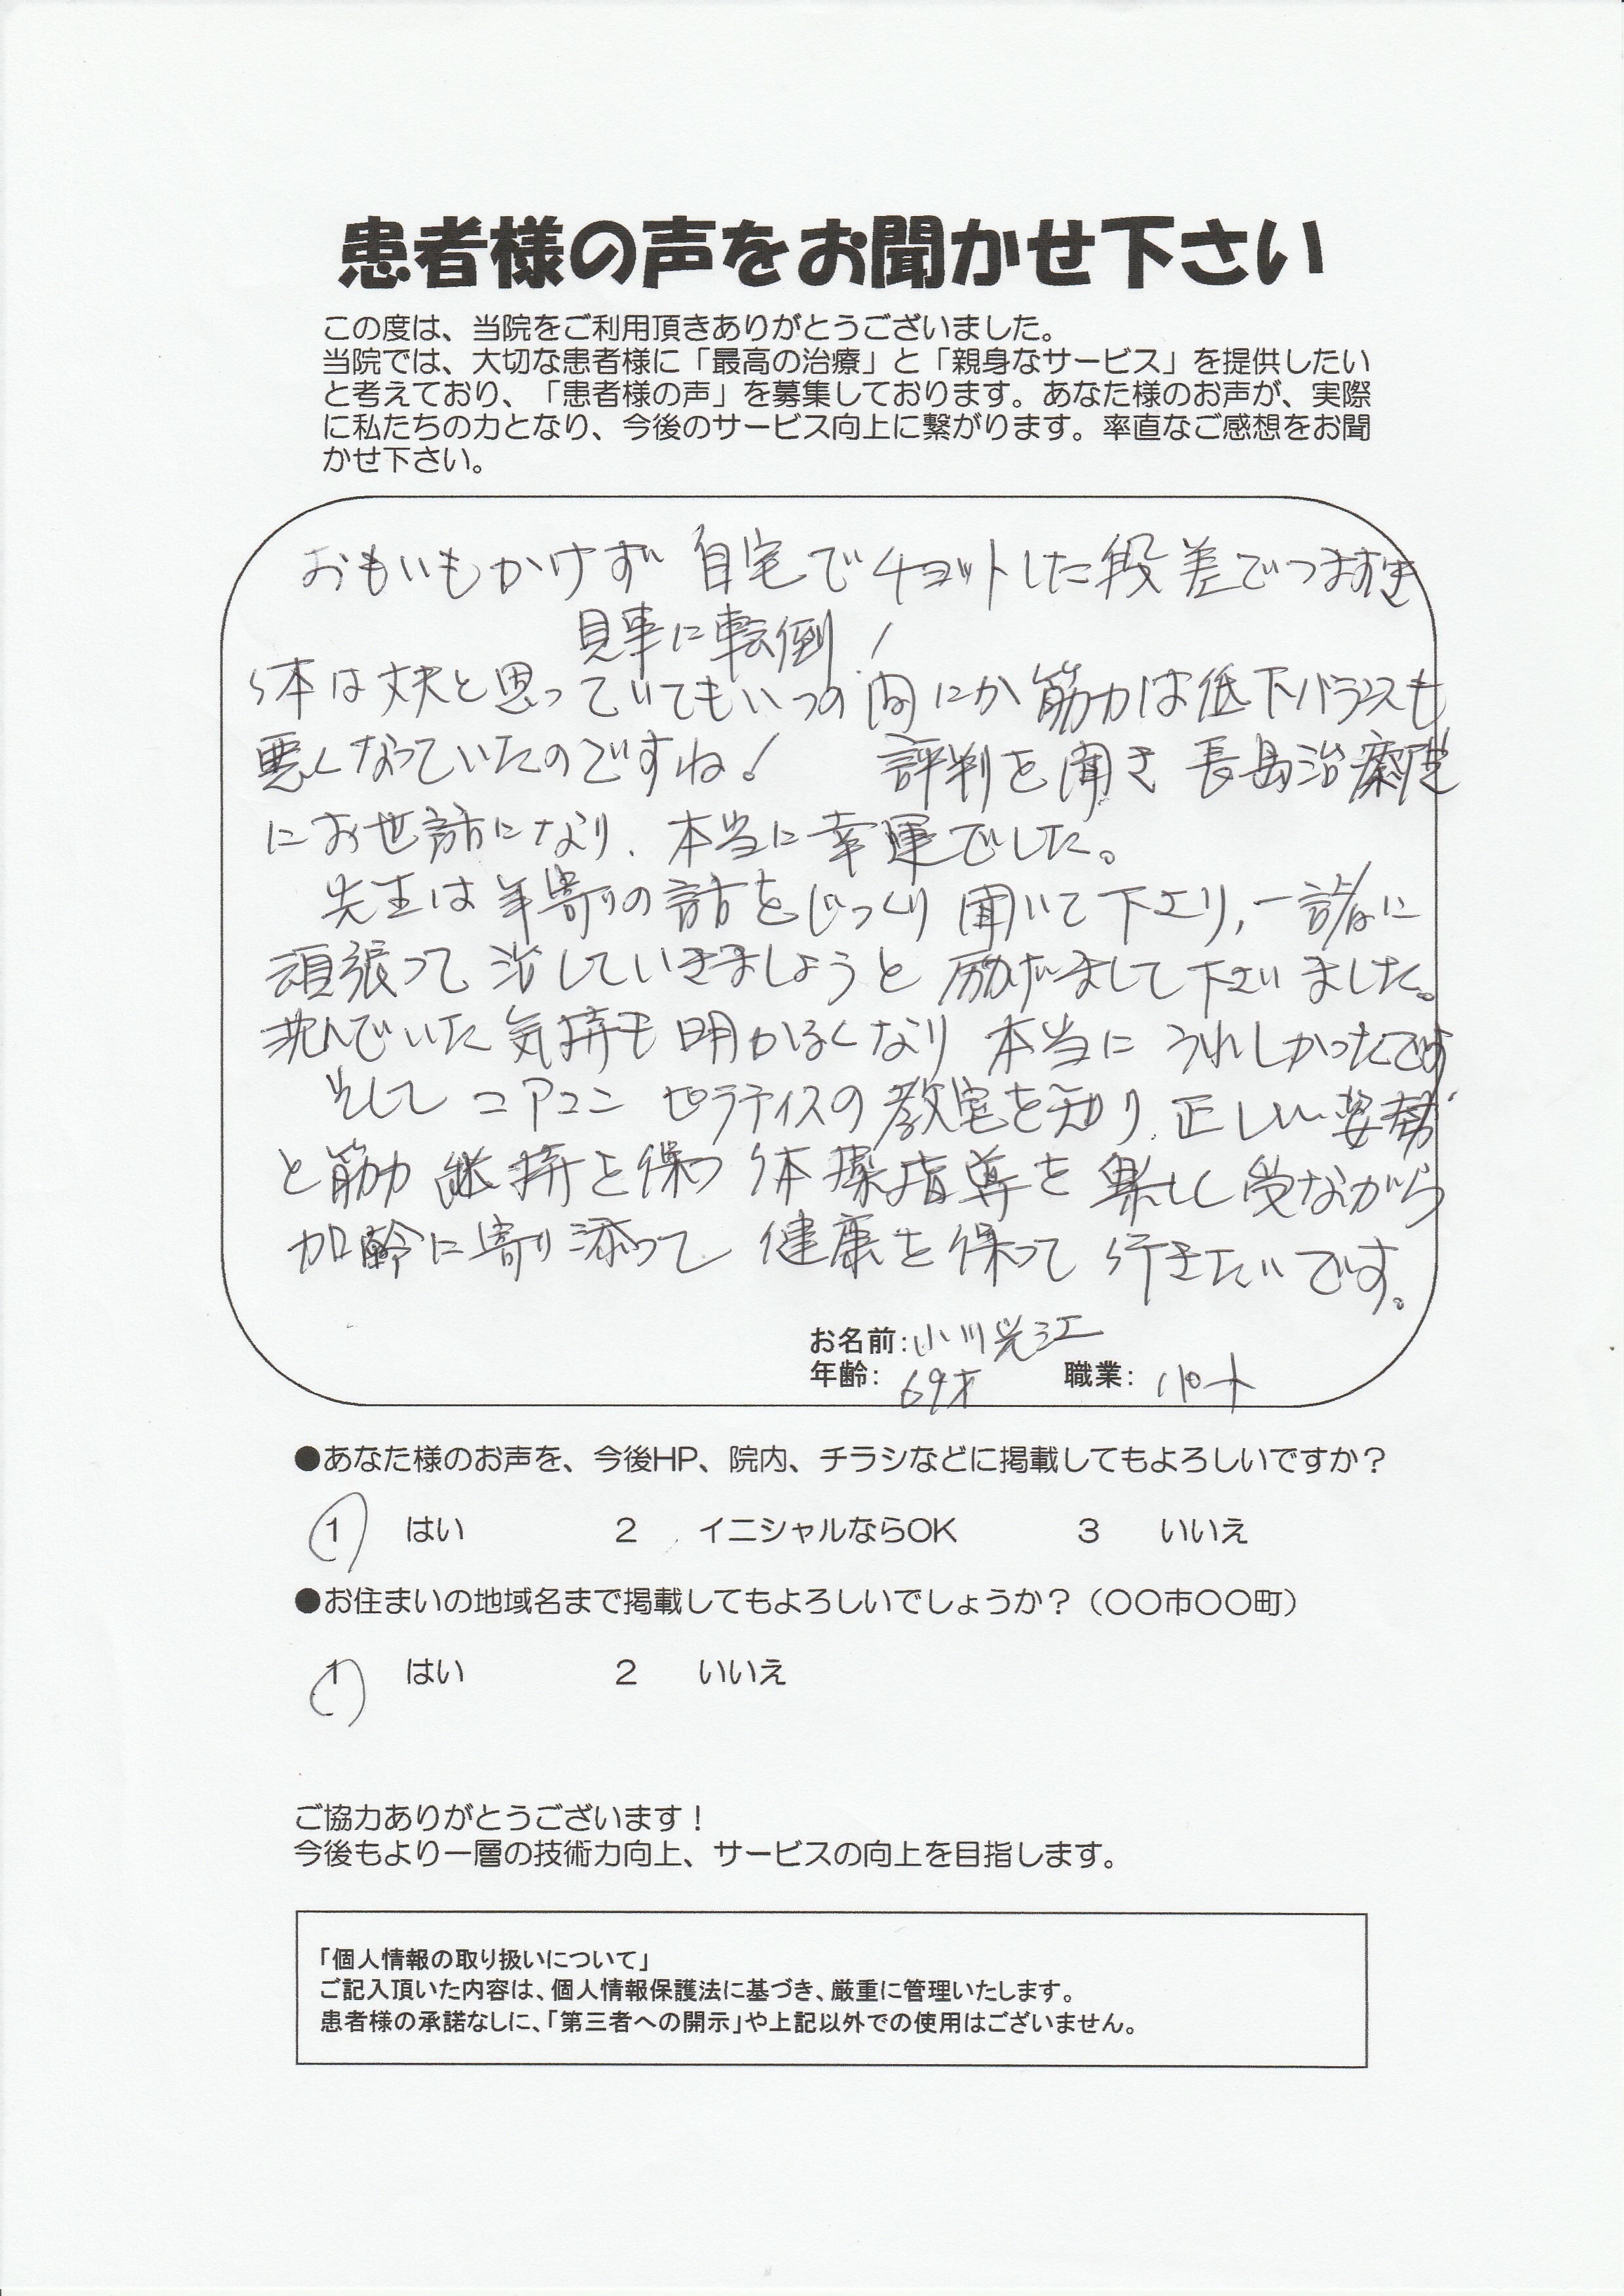 患者様の声をお聞かせ下さい
この度は、当院をご利用頂きありがとうございました。
当院では、大切な患者様に「最高の治療」と「親身なサービス」を提供したい
と考えており、「患者様の声」を募集しております。あなた様のお声が、実際
に私たちの力となり、今後のサービス向上に繋がります。率直なご感想をお聞
かせ下さい。
おもいもかけず 自宅でチョットした段差でつまずき
見事に転倒!
体は丈夫と思っていてもいつの間にか筋力は低下バランスも
悪くなっていたのですね! 評判を聞き 長島治療院
にお世話になり、本当に幸運でした。
先生は年寄りの話をじっくり聞いて下さり,一諸に
頑張って治していきましょうと励げまして下さいました。
沈んでいた気持も明かるくなり 本当にうれしかったです
そして コアコン ピラティスの教室を知り、正しい姿勢
と筋力 維持を保つ 体操指導を楽しく受ながら
加齢に寄り添って 健康を保って行きたいです。
お名前:小川光江
年齢: 69才 職業: パート
●あなた様のお声を、今後HP、院内、チラシなどに掲載してもよろしいですか?
1 はい 2 イニシャルならOK 3 いいえ
●お住まいの地域名まで掲載してもよろしいでしょうか?(〇〇市〇〇町)
1 はい 2 いいえ
ご協力ありがとうございます!
今後もより一層の技術力向上、サービスの向上を目指します。
「個人情報の取り扱いについて」
ご記入頂いた内容は、個人情報保護法に基づき、厳重に管理いたします。
患者様の承諾なしに、「第三者への開示」や上記以外での使用はございません。